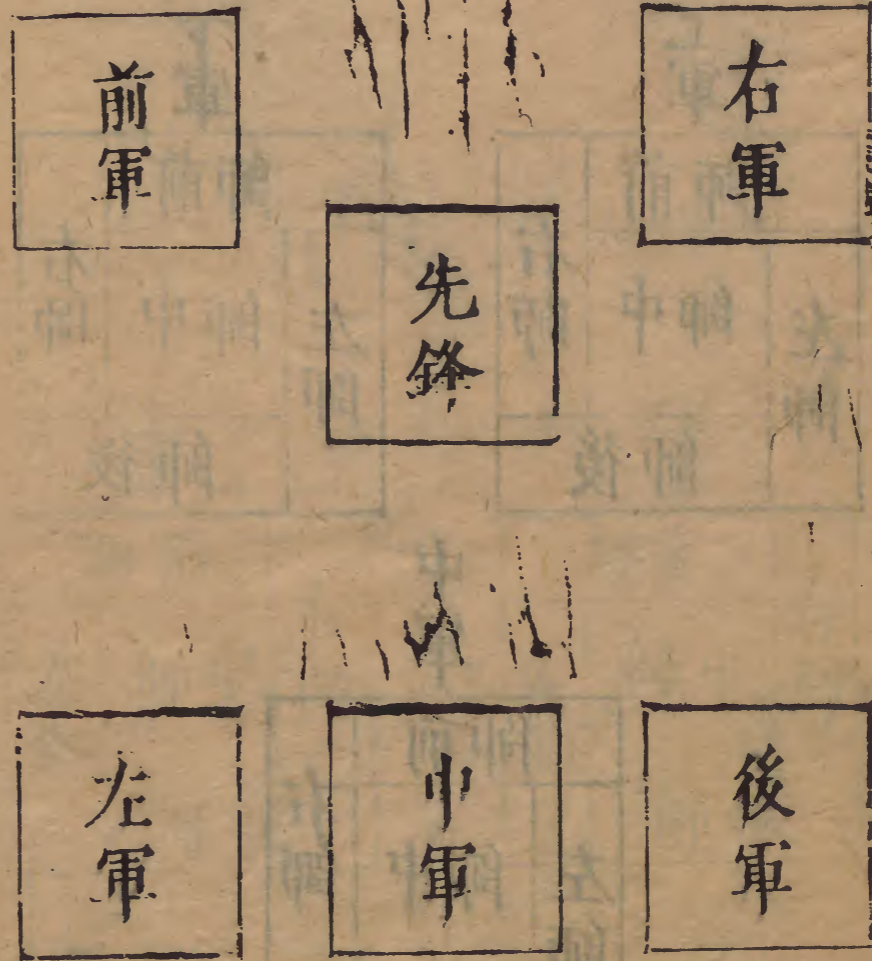 右軍
前軍
先鋒
後軍
中軍
左軍